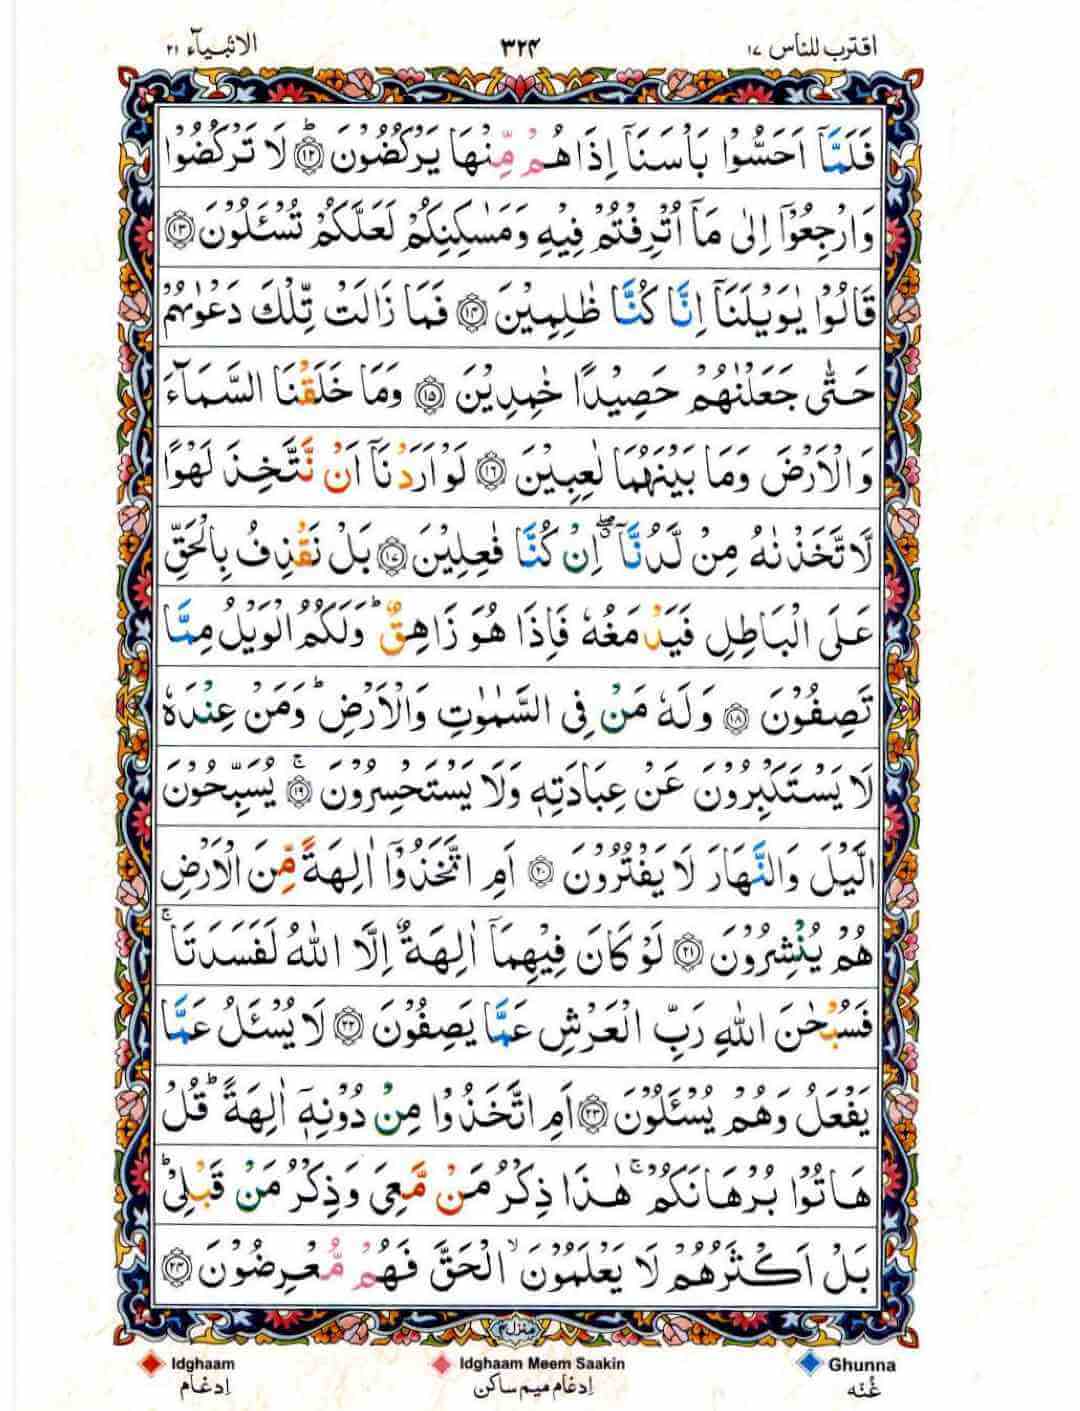 اقترب للناس ١٧ ٣٢٤ الانبیآء ٢١
فَلَمَّاۤ اَحَسُّوْا بَاْسَنَاۤ اِذَا هُمْ مِّنْهَا یَرْكُضُوْنَ ؕ﴿۱۲﴾ لَا تَرْكُضُوْا
وَارْجِعُوْۤا اِلٰی مَاۤ اُتْرِفْتُمْ فِیْهِ وَمَسٰكِنِكُمْ لَعَلَّكُمْ تُسْـَٔلُوْنَ ﴿۱۳﴾
قَالُوْا یٰوَیْلَنَاۤ اِنَّا كُنَّا ظٰلِمِیْنَ ﴿۱۴﴾ فَمَا زَالَتْ تِّلْكَ دَعْوٰىهُمْ
حَتّٰی جَعَلْنٰهُمْ حَصِیْدًا خٰمِدِیْنَ ﴿۱۵﴾ وَمَا خَلَقْنَا السَّمَآءَ
وَالْاَرْضَ وَمَا بَیْنَهُمَا لٰعِبِیْنَ ﴿۱۶﴾ لَوْ اَرَدْنَاۤ اَنْ نَّتَّخِذَ لَهْوًا
لَّاتَّخَذْنٰهُ مِنْ لَّدُنَّاۤ ۖۗ اِنْ كُنَّا فٰعِلِیْنَ ﴿۱۷﴾ بَلْ نَقْذِفُ بِالْحَقِّ
عَلَی الْبَاطِلِ فَیَدْمَغُهٗ فَاِذَا هُوَ زَاهِقٌ ؕ وَلَكُمُ الْوَیْلُ مِمَّا
تَصِفُوْنَ ﴿۱۸﴾ وَلَهٗ مَنْ فِی السَّمٰوٰتِ وَالْاَرْضِ ؕ وَمَنْ عِنْدَهٗ
لَا یَسْتَكْبِرُوْنَ عَنْ عِبَادَتِهٖ وَلَا یَسْتَحْسِرُوْنَ ۚ﴿۱۹﴾ یُسَبِّحُوْنَ
الَّیْلَ وَالنَّهَارَ لَا یَفْتُرُوْنَ ﴿۲۰﴾ اَمِ اتَّخَذُوْۤا اٰلِهَةً مِّنَ الْاَرْضِ
هُمْ یُنْشِرُوْنَ ﴿۲۱﴾ لَوْ كَانَ فِیْهِمَاۤ اٰلِهَةٌ اِلَّا اللّٰهُ لَفَسَدَتَا ۚ
فَسُبْحٰنَ اللّٰهِ رَبِّ الْعَرْشِ عَمَّا یَصِفُوْنَ ﴿۲۲﴾ لَا یُسْـَٔلُ عَمَّا
یَفْعَلُ وَهُمْ یُسْـَٔلُوْنَ ﴿۲۳﴾ اَمِ اتَّخَذُوْا مِنْ دُوْنِهٖۤ اٰلِهَةً ؕ قُلْ
هَاتُوْا بُرْهَانَكُمْ ۚ هٰذَا ذِكْرُ مَنْ مَّعِیَ وَذِكْرُ مَنْ قَبْلِیْ ؕ
بَلْ اَكْثَرُهُمْ لَا یَعْلَمُوْنَ ۙ الْحَقَّ فَهُمْ مُّعْرِضُوْنَ ﴿۲۴﴾
منزل ۴
Idghaam Idghaam Meem Saakin Ghunna
اِدغام اِدغام میم ساکن غُنّه